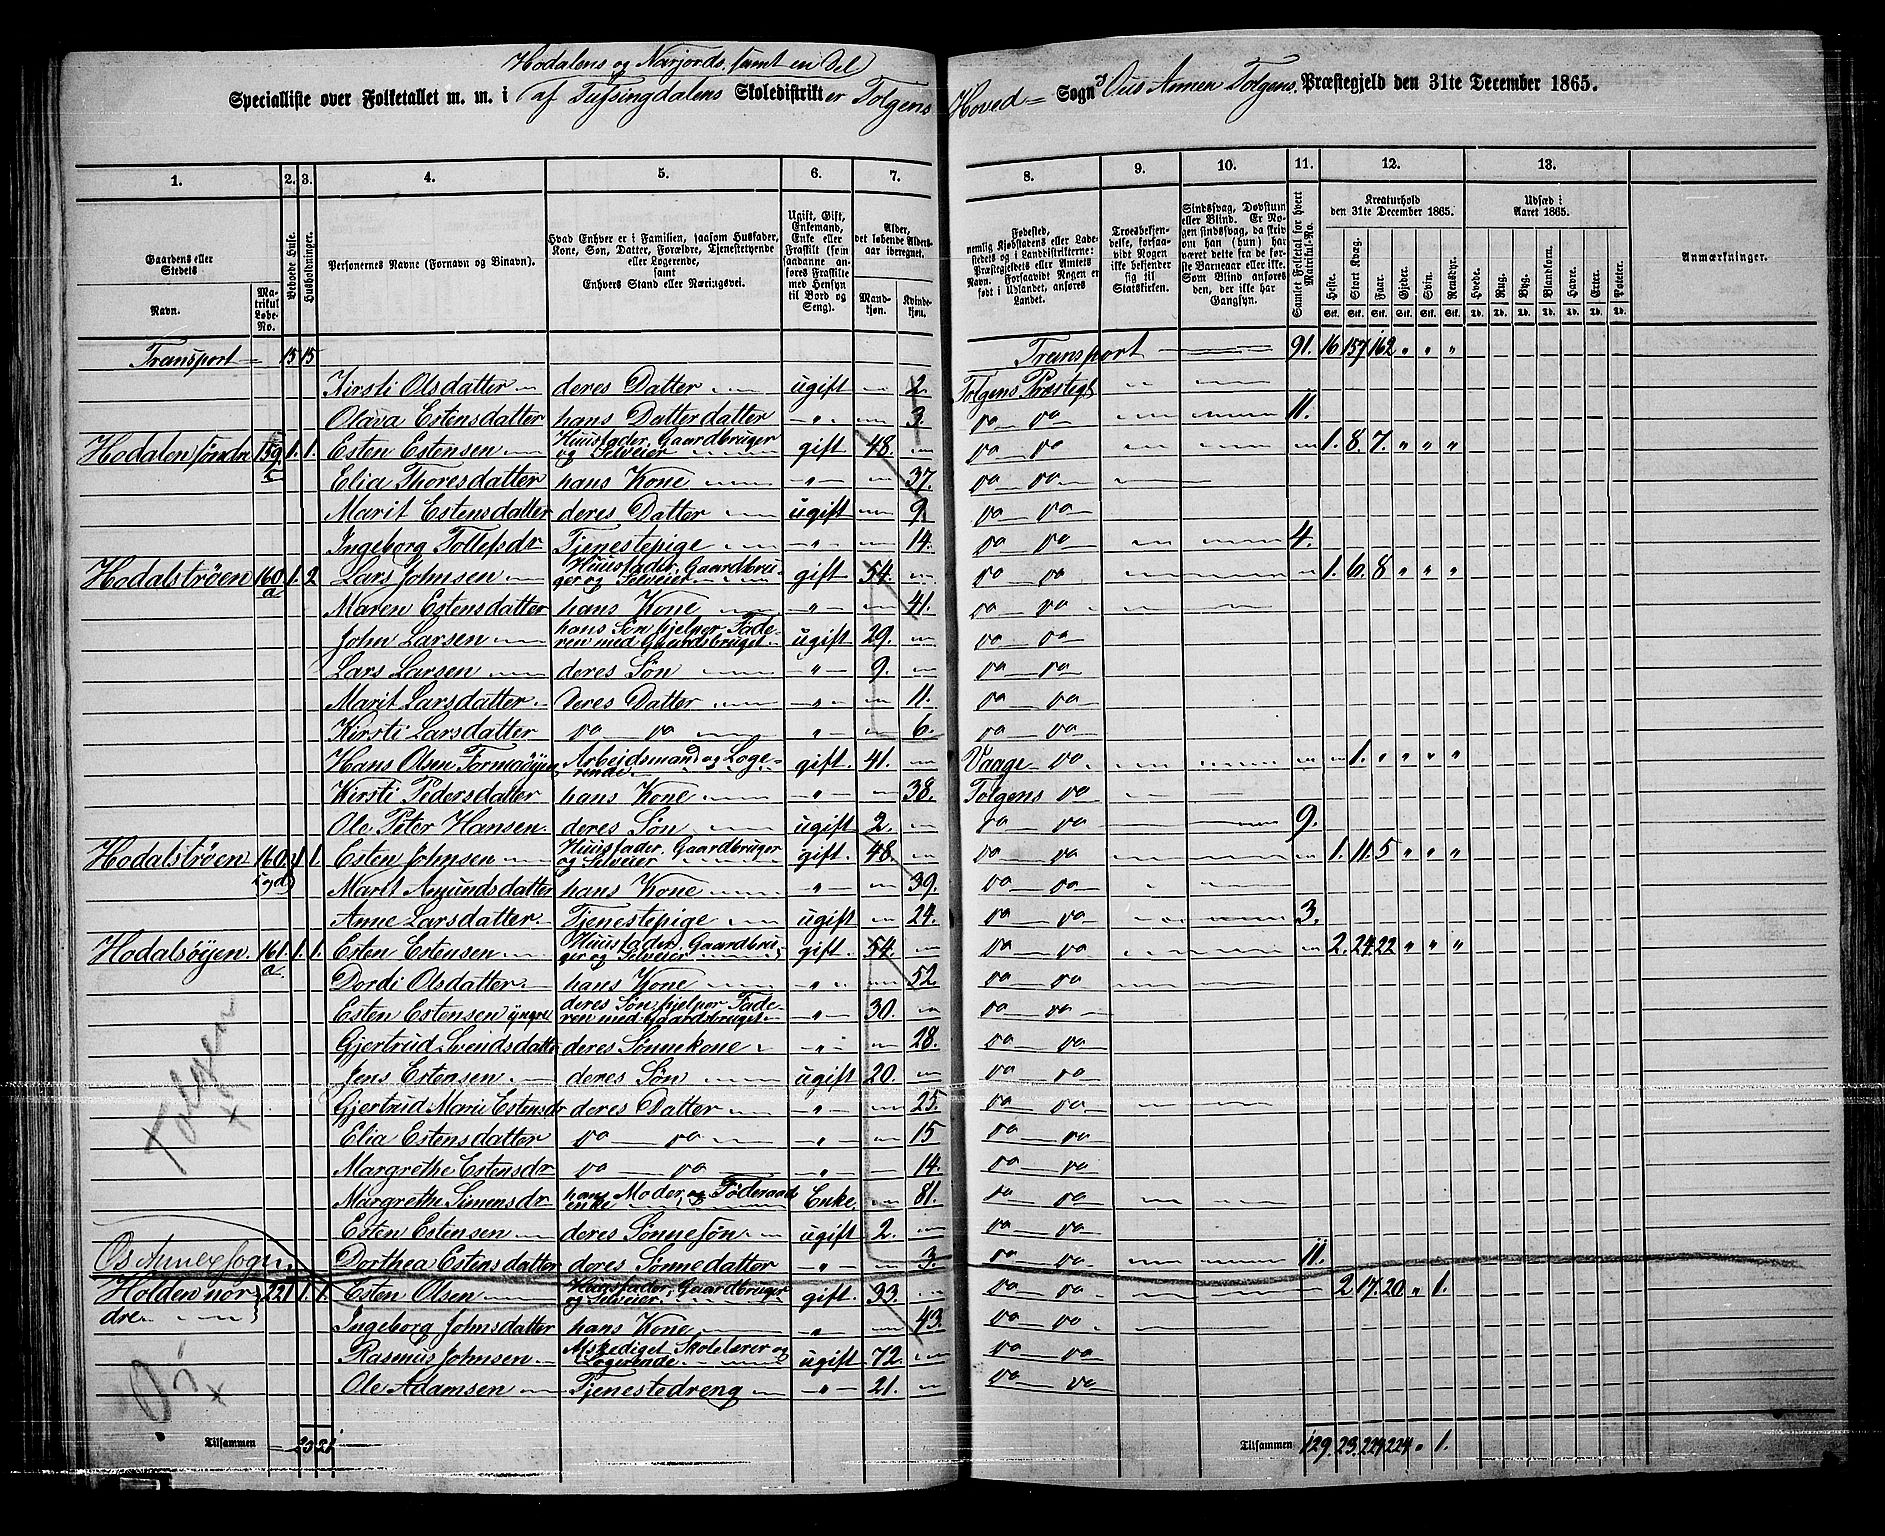 Hodalens og Narjords, samt en Del
Specialliste over Folketallet m. m. i af Tufsingdalens Skoledistrikter Tolgens Hoved Sogn, Ous Annex Tolgens Præstegjeld den 31te December 1865.
1. 2. 3. 4. 5. 6. 7. 8. 9. 10. 11. 12. 13.
Gaardens eller Stedets
Navn. Matrikul Løbe-No.
Beboede Huse.
Husholdninger.
Personernes Navne (Fornavn og Binavn).
Hvad Enhver er i Familien, saasom Husfader, Kone, Søn, Datter, Forældre, Tjenestetyende eller Logerende, samt Enhvers Stand eller Næringsvei.
Ugift, Gift, Enkemand, Enke eller Fraskilt (som saadanne anføres Fraskilte med Hensyn til Bord og Seng).
Alder, det løbende Aldersaar iberegnet.
Mandkjøn. Kvindekjøn.
Fødested, nemlig Kjøbstadens eller Ladestedets og i Landdistrikterne: Præstegjeldets eller Amtets Navn. Forsaavidt Nogen er født i Udlandet, anføres Landet.
Troesbekjendelse, forsaavidt Nogen ikke bekjender sig til Statskirken.
Sindssvag, Døvstum eller Blind. Er Nogen sindssvag, da skrives om han (hun) har været dette fra de første Barneaar eller ikke. Som Blind anføres den, der ikke har Gangsyn.
Samlet Folketal for hvert Matrikul-No.
Kreaturhold den 31te December 1865.
Heste. Stort Kvæg. Faar. Gjeder. Svin. Rensdyr.
Stk. Stk. Stk. Stk. Stk. Stk.
Udsæd i Aaret 1865.
Hvede. Rug. Byg. Blandkorn. Havre. Erter. Poteter.
Td. Td. Td. Td. Td. Td. Td.
Anmærkninger.
Transport 15 15 Transport 91. 16 157 162 " " "
Kirsti Olsdatter deres Datter ugift 2. Tolgens Præstegj
Olava Estensdatter hans Datterdatter " 3. do do 11.
Hodalen søndre 159 1. 1. Esten Estensen Huusfader, Gaardbruger og Selveier gift 48. do do 1. 8. 7. " " "
Elia Thoresdatter hans Kone " 37. do do
Marit Estensdatter deres Datter ugift 9. do do
Ingeborg Tollefsdr Tjenestepige " 14. do do 4.
Hodalstrøen 160 a 1. 2 Lars Johnsen Huusfader, Gaardbruger og Selveier gift 54. do do 1. 6. 8 " " "
Maren Estensdatter hans Kone " 41. do do
John Larsen hans Søn hjelper Faderen med Gaardsbruget ugift 29. do do
Lars Larsen deres Søn " 9. do do
Marit Larsdatter deres Datter " 11. do do
Kirsti Larsdatter do do " 6. do do
Hans Olsen Formoøyen Arbeidsmand og Logerende gift 41. Vaage do 1. " " " "
Kirsti Pedersdatter hans Kone " 38. Tolgens do
Ole Peter Hansen deres Søn ugift 2. do do 9.
Hodalstrøen 160 c og d 1 1. Esten Johnsen Huusfader, Gaardbruger og Selveier gift 48 do do 1. 11. 5 " " "
Marit Amundsdatter hans Kone " 39. do do
Anne Larsdatter Tjenestepige ugift 24. do do 3.
Hodalsøyen 161. a. 1. 1. Esten Estensen Huusfader, Gaardbruger og Selveier gift 54. do do 2. 24. 22 " " "
Dordi Olsdatter hans Kone " 52. do do
Esten Estensen yngre deres Søn hjelper Faderen med Gaardsbruget " 30. do do
Gjertrud Svendsdatter deres Sønnekone " 28. do do
Jens Estensen deres Søn ugift 20. do do
Gjertrud Marie Estensdr deres Datter " 25. do do
Elia Estensdatter do do " 15 do do
Margrethe Estensdr do do " 14. do do
Margrethe Simensdr hans Moder og Føderaadsenke Enke 81. do do
Esten Estensen deres Sønnesøn ugift 2. do do
Dorthea Estensdatter deres Sønnedatter " 3. do do 11.
Tolgen
Os Annexsogn.
Holden nordre 221 1. 1. Esten Olsen Huusfader, Gaardbruger og Selveier gift 33. do do 2 17. 20 " 1.
Ingeborg Johnsdatter hans Kone " 43. do do
Rasmus Johnsen Afskediget Skolelærer og Logerende ugift 72. do do
Ole Adamsen Tjenestedreng " 21. do do
Os
Tilsammen 20 21 Tilsammen 129. 23. 224 224 " 1.